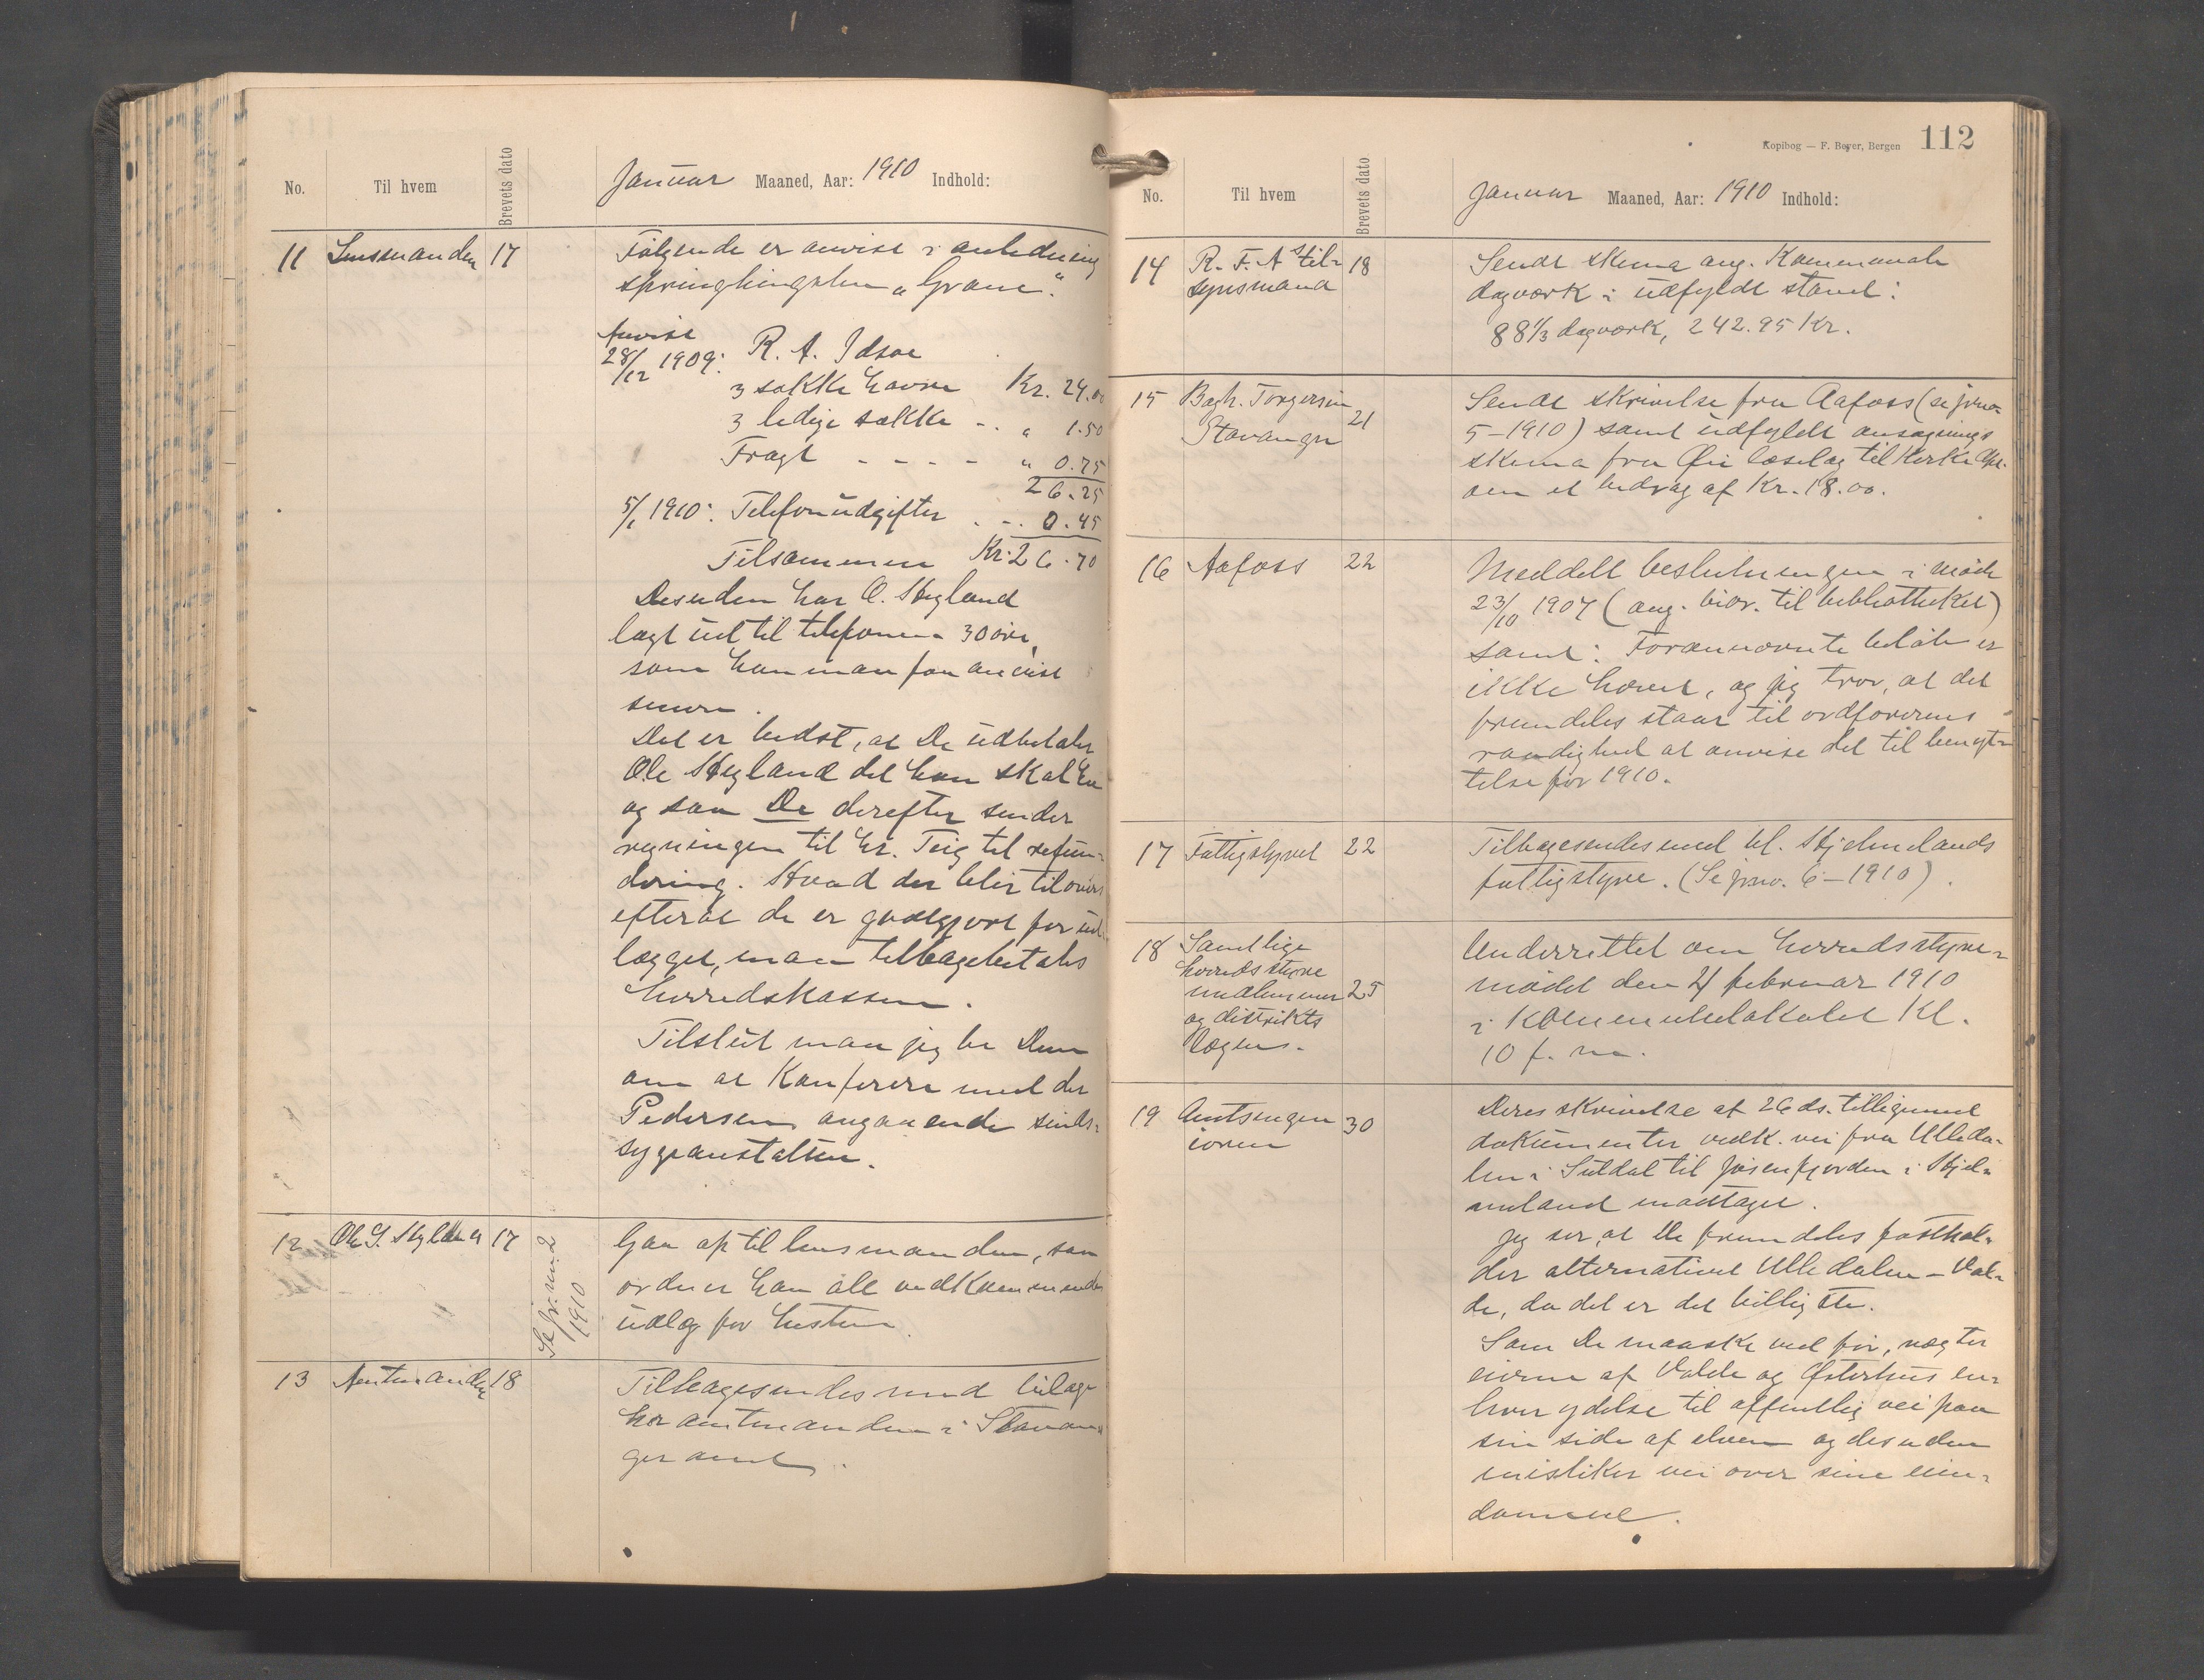 No. Til hvem Brevets dato Januar Maaned, Aar: 1910 Indhold:
11 Lensmanden 17
Følgende er anvist i anledning
springhingsten "Gram".
Anvist
28/12 1909: R. A. Idsøe
3 sække havre Kr. 24.00
3 ledige sække - . " 1.50
Fragt - - - - " 0.75
26.25
5/1 1910: Telefonudgifter . - . 0.45
Tilsammen Kr. 26.70
Desuden har O. Hegland
lagt ud til telefonen 30 øre,
som han maa faa anvist
senere.
Det er bedst, at De udbetaler
Ole Hegland det han skal ha
og saa De derefter sender
regningen til hr. Teig til refun-
dering. Hvad der blir tilovers
efterat de er godtgjort for ud-
lægget, maa tilbagebetales
herredskassen.
Tilslut maa jeg be Dem
om at konferere med der
Pedersen angaaende sinds-
sygeanstalten.
12 Ole S. Hegland 17 Se jr. nr. 2
1910
Gaa op til lensmanden, saa
ordner han alt vedkommende
udlæg for hesten.
13 Amtmanden 18
Tilbagesendes med bilag
hr amtmanden i Stavan-
ger amt.
Kopibog — F. Beyer, Bergen 112
No. Til hvem Brevets dato Januar Maaned, Aar: 1910 Indhold:
14 R. F. A Stil-
synsmand 18
Sendt skema ang. Kommunale
dagværk i udfyldt stand:
88 1/3 dagværk, 242.95 Kr.
15 Bogh. Torgersen
Stavanger 21
Sendt skrivelse fra Aafoss (se jrno.
5-1910) samt udfyldt ansøgnings
skema fra Øie læselag til Kirke dpt.
om et bidrag af Kr. 18.00.
16 Aafoss 22
Meddelt beslutningen i møde
23/10 1907 (ang. bidr. til bibliotheket)
samt: Forannævnte beløb er
ikke hævet, og jeg tror, at det
fremdeles staar til ordførerens
raadighed at anvise det til benyt-
telse for 1910.
17 Fattigstyret 22
Tilbagesendes med bl. Hjelmelands
fattigstyre. (Se jrno. 6-1910).
18 Samtlige
herredsstyre
medlemmer
og distrikts
lægens. 25
Underrettet om herredsstyre-
mødet den 4 februar 1910
i Kommunelokalet Kl.
10 f. m.
19 Amtsingen
iøren 30
Deres skrivelse af 26 ds. tilligemed
dokumenter vedk. vei fra Ulleda-
len i Suldal til Jøsenfjorden i Hjel-
meland modtaget.
Jeg ser, at De fremdeles fasthol-
der alternativet Ulledalen - Val-
de, da det er det billigste.
Som De maaske ved før, nægter
eierne af Valde og Østerhus en-
hver ydelse til offentlig vei paa
sin side af elven og desuden
misliker vei over sine eien-
domme.